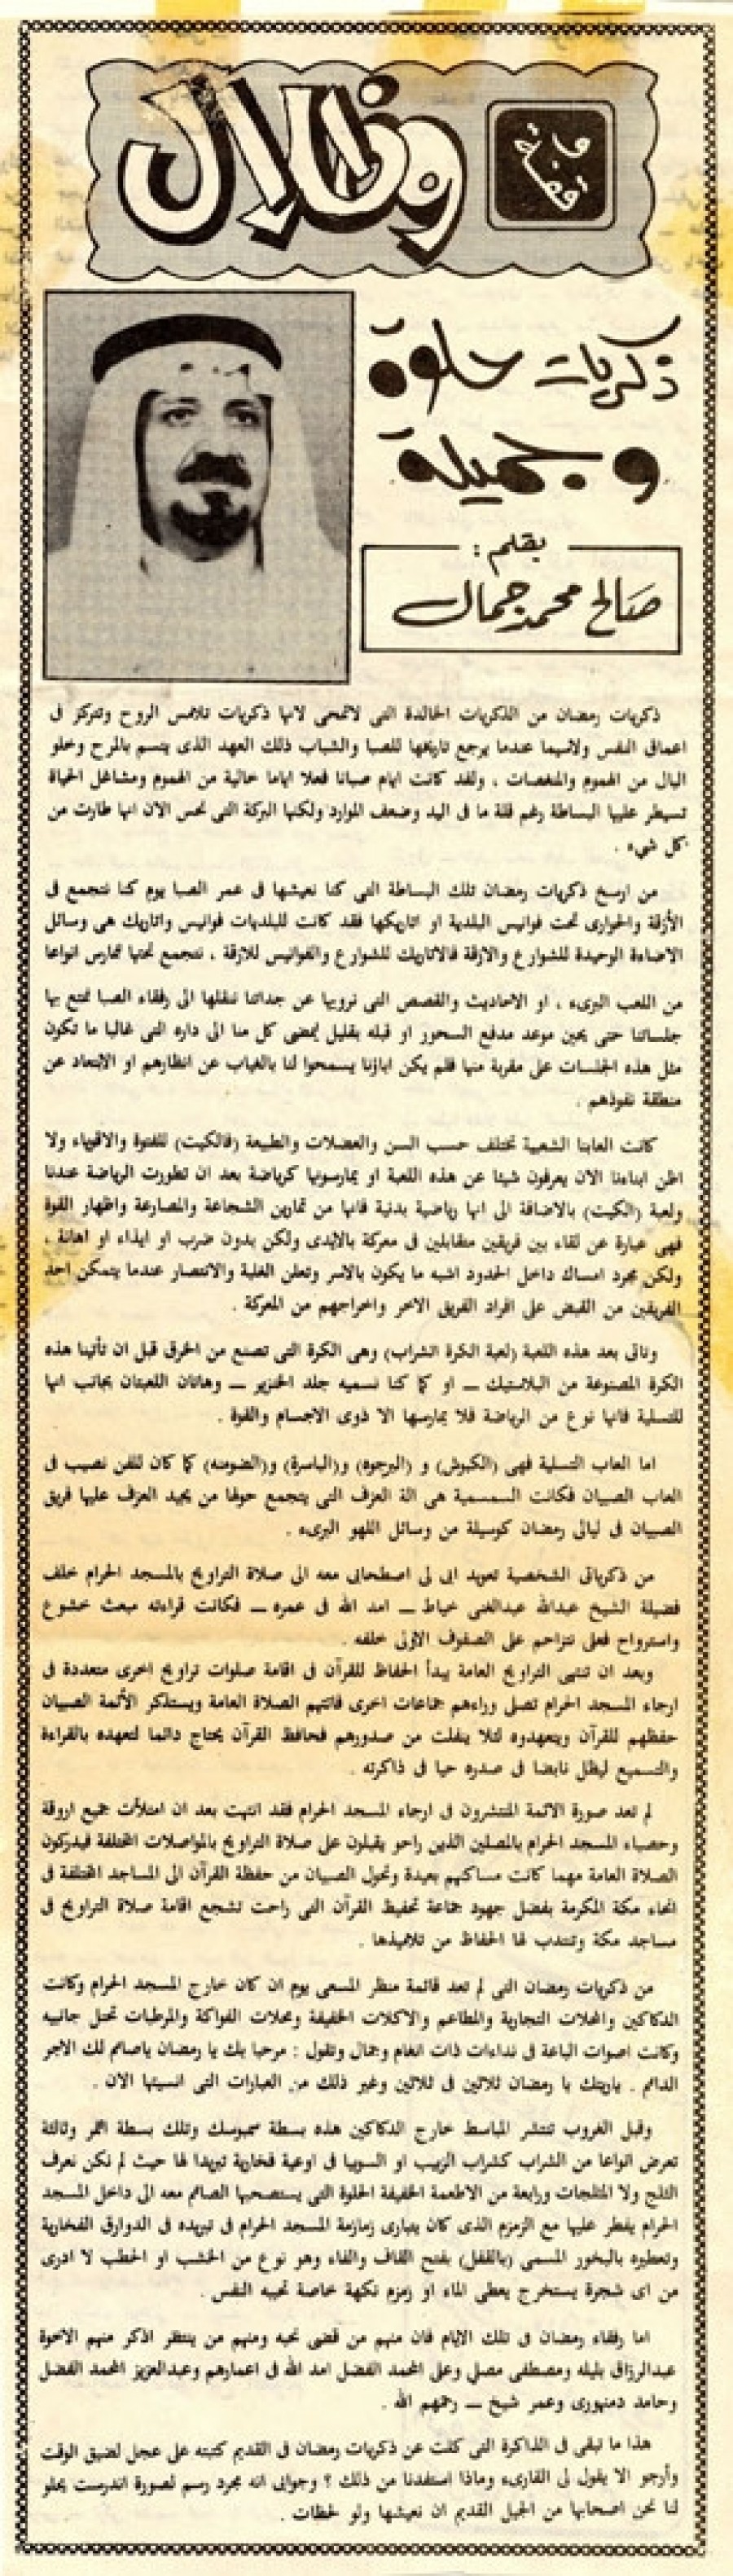 وظلال
ذكريات حلوة
وجميلة
بقلم :
صالح محمد جمال
ذكريات رمضان من الذكريات الخالدة التى لاتمحى لانها ذكريات تلامس الروح وتتركز فى
اعماق النفس ولاسيما عندما يرجع تاريخها للصبا والشباب ذلك العهد الذى يتسم بالمرح وخلو
البال من الهموم والمنغصات . ولقد كانت ايام صبانا فعلا اياما خالية من الهموم ومشاغل الحياة
تسيطر عليها البساطة رغم قلة ما فى اليد وضعف الموارد ولكنها البركة التى نحس الان انها طارت من
كل شىء .
من ارسخ ذكريات رمضان تلك البساطة التى كنا نعيشها فى عمر الصبا يوم كنا نتجمع فى
الأزقة والحوارى تحت فوانيس البلدية او اتاريكها فقد كانت للبلديات فوانيس واتاريك هى وسائل
الاضاءة الوحيدة للشوارع والازقة فالاتاريك للشوارع والفوانيس للازقة ، نتجمع تحتها نمارس انواعا
من اللعب البرىء ، او الاحاديث والقصص التى نرويها عن جداتنا ننقلها الى رفقاء الصبا نمتع بها
جلساتنا حتى يحين موعد مدفع السحور او قبله بقليل ليمضى كل منا الى داره التى غالبا ما تكون
مثل هذه الجلسات على مقربة منها فلم يكن اباؤنا يسمحوا لنا بالغياب عن انظارهم او الابتعاد عن
منطقة نفوذهم .
كانت العابنا الشعبية تختلف حسب السن والعضلات والطبيعة (فالكبت) للفتوة والاقوياء ولا
اظن ابناءنا الان يعرفون شيئا عن هذه اللعبة او يمارسونها كرياضة بعد ان تطورت الرياضة عندنا
ولعبة (الكبت) بالاضافة الى انها رياضية بدنية فانها من تمارين الشجاعة والمصارعة واظهار القوة
فهى عبارة عن لقاء بين فريقين متقابلين فى معركة بالايدى ولكن بدون ضرب او ايذاء او اهانة .
ولكن مجرد امساك داخل الحدود اشبه ما يكون بالاسر وتعلن الغلبة والانتصار عندما يتمكن احد
الفريقين من القبض على افراد الفريق الاخر واخراجهم من المعركة .
وتاتى بعد هذه اللعبة (لعبة الكرة الشراب) وهى الكرة التى تصنع من الخرق قبل ان تأتينا هذه
الكرة المصنوعة من البلاستيك ــ او كما كنا نسميه جلد الخنزير ــ وهاتان اللعبتان بجانب انها
للتسلية فانها نوع من الرياضة فلا يمارسها الا ذوى الاجسام والقوة .
اما العاب التسلية فهى (الكبوش) و (البرجوه) و(الباسرة) و(الضومنه) كما كان للفن نصيب فى
العاب الصبيان فكانت السمسمية هى الة العزف التى يتجمع حولها من يجيد العزف عليها فريق
الصبيان فى ليالى رمضان كوسيلة من وسائل اللهو البرىء .
من ذكرياتى الشخصية تعويد ابى لى اصطحابى معه الى صلاة التراويح بالمسجد الحرام خلف
فضيلة الشيخ عبدالله عبدالغنى خياط ــ امد الله فى عمره ــ فكانت قراءته مبعث خشوع
واسترواح فعلى نتزاحم على الصفوف الاولى خلفه .
وبعد ان تنتهى التراويح العامة يبدأ الحفاظ للقرآن فى اقامة صلوات تراويح اخرى متعددة فى
ارجاء المسجد الحرام تصلى وراءهم جماعات اخرى فاتتهم الصلاة العامة ويستذكر الأئمة الصبيان
حفظهم للقرآن ويتعهدوه لئلا ينفلت من صدورهم فحافظ القرآن يحتاج دائما لتعهده بالقراءة
والتسميع ليظل نابضا فى صدره حيا فى ذاكرته .
لم تعد صورة الائمة المنتشرون فى ارجاء المسجد الحرام فقد انتهت بعد ان امتلأت جميع اروقة
وحصباء المسجد الحرام بالمصلين الذين راحو يقبلون على صلاة التراويح بالمواصلات المختلفة فيدركون
الصلاة العامة مهما كانت مساكنهم بعيدة وتحول الصبيان من حفظة القرآن الى المساجد المختلفة فى
انحاء مكة المكرمة بفضل جهود جماعة تحفيظ القرآن التى راحت تشجع اقامة صلاة التراويح فى
مساجد مكة وتنتدب لها الحفاظ من تلاميذها .
من ذكريات رمضان التى لم تعد قائمة منظر المسعى يوم ان كان خارج المسجد الحرام وكانت
الدكاكين والمحلات التجارية والمطاعم والاكلات الخفيفة ومحلات الفواكة والمرطبات تحتل جانبيه
وكانت اصوات الباعة فى نداءات ذات انغام وجمال وتقول : مرحبا بك يا رمضان ياصائم لك الاجر
الدائم . ياريتك يا رمضان ثلاثين فى ثلاثين وغير ذلك من العبارات التى انسيتها الان .
وقبل الغروب تنتشر المباسط خارج الدكاكين هذه بسطة سمبوسك وتلك بسطة التمر وثالثة
تعرض انواعا من الشراب كشراب الزبيب او السوبيا فى اوعية فخارية تبريدا لها حيث لم نكن نعرف
الثلج ولا المثلجات ورابعة من الاطعمة الخفيفة الحلوة التى يستصحبها الصائم معه الى داخل المسجد
الحرام يفطر عليها مع الزمزم الذى كان يتبارى زمازمة المسجد الحرام فى تبريده فى الدوارق الفخارية
وتعطيره بالبخور المسمى (بالقفل) بفتح القاف والفاء وهو نوع من الخشب او الحطب لا ادرى
من اى شجرة يستخرج يعطى الماء او زمزم نكهة خاصة تحبه النفس .
اما رفقاء رمضان فى تلك الايام فان منهم من قضى نحبه ومنهم من ينتظر اذكر منهم الاخوة
عبدالرزاق بليله ومصطفى مصلى وعلى المحمد الفضل امد الله فى اعمارهم وعبدالعزيز المحمد الفضل
وحامد دمنهورى وعمر شيخ ــ رحمهم الله .
هذا ما تبقى فى الذاكرة التى كلت عن ذكريات رمضان فى القديم كتبته على عجل لضيق الوقت
وأرجو الا يقول لى القارىء وماذا استفدنا من ذلك ؟ وجوابى انه مجرد رسم لصورة اندرست يحلو
لنا نحن اصحابها من الجيل القديم ان نعيشها ولو لحظات .